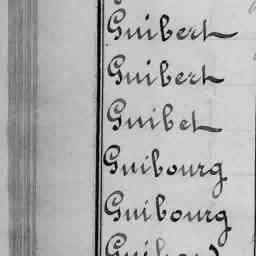 Guibert
Guibert
Guibet
Guibourg
Guibourg